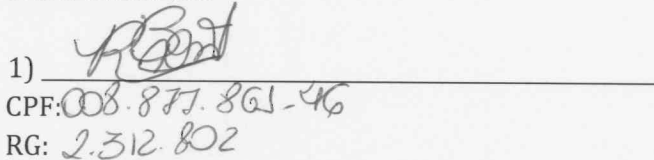 1)
CPF: 008.877.861-46
RG: 2.312.802